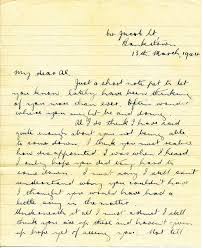 60 Jacob St.
Bankstown
13th March 1944
My dear Al,
Just a short note pet to let
you know lately have been thinking
of you more than ever, often wonder
where you might be and
Al I do think I have said
quite enough about you not being able
to come down. I think you must realise
how disappointed I was when I heard
I only hope you did try hard to
come down. I must say I still can't
understand why you couldn't have
I thought you would have had a
little say in the matter
Underneath it all I must admit I still
think you are up there and haven't given
up hope yet of seeing you. But till